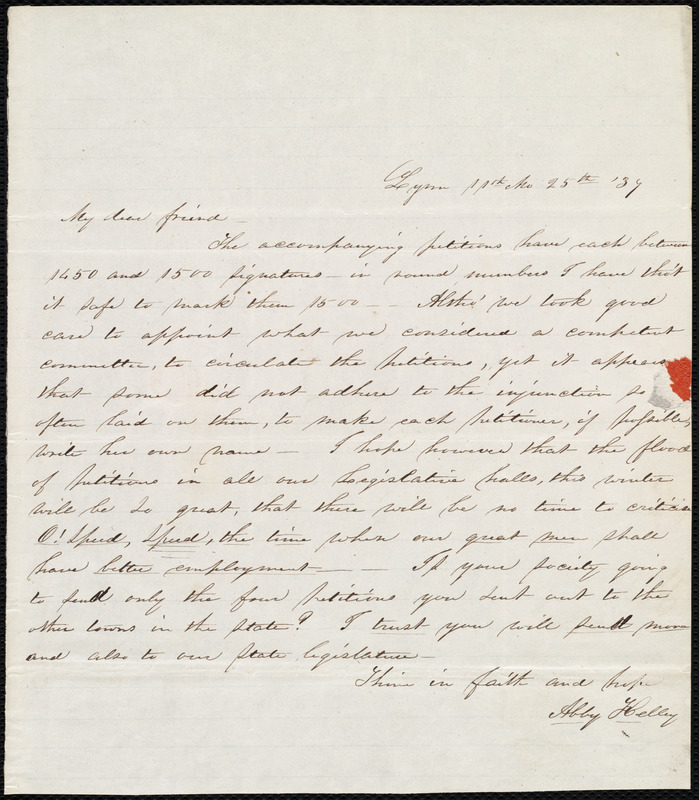 Lynn 11th Mo 25th '37
My dear friend—
The accompanying petitions have each between
1450 and 1500 signatures — in round numbers I have tho't
it safe to mark them 1500 — — Altho' we took good
care to appoint what we considered a competent
committee, to circulate the petitions, yet it appears
that some did not adhere to the injunction so
often laid on them, to make each petitioner, if possible,
write her own name — I hope however that the flood
of petitions in all our Legislative halls, this winter
will be so great, that there will be no time to criticise
O! speed, speed, the time when our great men shall
have better employment — — Is your society going
to send only the four petitions you sent out to the
other towns in the state? I trust you will send more
and also to our state legislature —
Thine in faith and hope
Abby Kelley